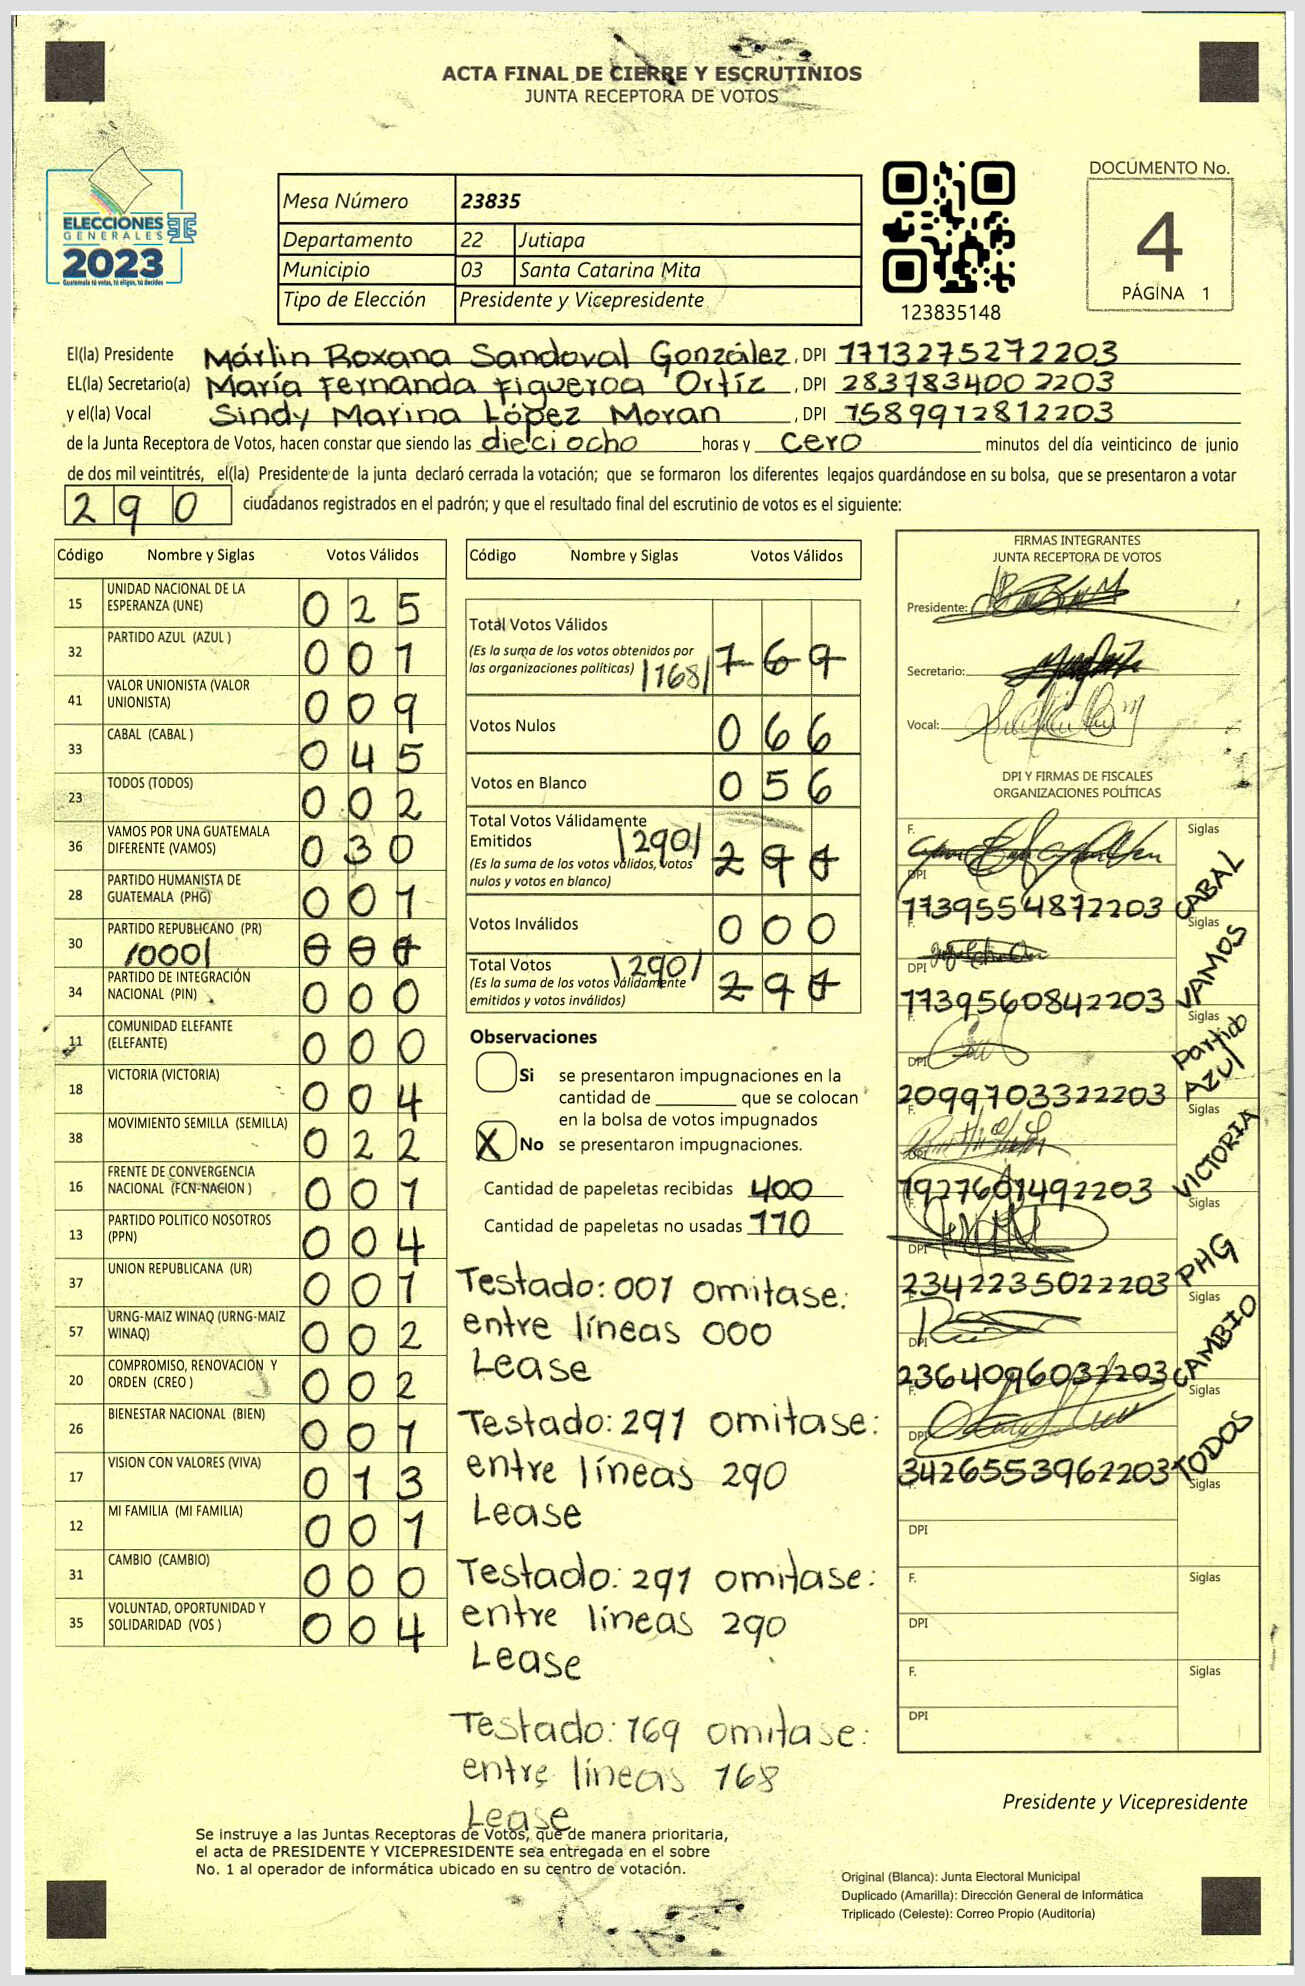 ACTA FINAL DE CIERRE Y ESCRUTINIOS
JUNTA RECEPTORA DE VOTOS
ELECCIONES
GENERALES
2023
Guatemala tú votas, tú eliges, tú decides
Mesa Número 23835
Departamento 22 Jutiapa
Municipio 03 Santa Catarina Mita
Tipo de Elección Presidente y Vicepresidente
123835148
DOCUMENTO No.
4
PÁGINA 1
El(la) Presidente Márlin Roxana Sandoval González, DPI 1713275272203
EL(la) Secretario(a) María Fernanda Figueroa Ortíz, DPI 2837834002203
y el(la) Vocal Sindy Marina López Moran, DPI 1589912812203
de la Junta Receptora de Votos, hacen constar que siendo las dieciocho horas y cero minutos del día veinticinco de junio
de dos mil veintitrés, el(la) Presidente de la junta declaró cerrada la votación; que se formaron los diferentes legajos quardándose en su bolsa, que se presentaron a votar
290 ciudadanos registrados en el padrón; y que el resultado final del escrutinio de votos es el siguiente:
Código Nombre y Siglas Votos Válidos
15 UNIDAD NACIONAL DE LA
ESPERANZA (UNE) 025
32 PARTIDO AZUL (AZUL ) 001
41 VALOR UNIONISTA (VALOR
UNIONISTA) 009
33 CABAL (CABAL ) 045
23 TODOS (TODOS) 002
36 VAMOS POR UNA GUATEMALA
DIFERENTE (VAMOS) 030
28 PARTIDO HUMANISTA DE
GUATEMALA (PHG) 001
30 PARTIDO REPUBLICANO (PR)
/000/ 001
34 PARTIDO DE INTEGRACIÓN
NACIONAL (PIN) 000
11 COMUNIDAD ELEFANTE
(ELEFANTE) 000
18 VICTORIA (VICTORIA) 004
38 MOVIMIENTO SEMILLA (SEMILLA) 022
16 FRENTE DE CONVERGENCIA
NACIONAL (FCN-NACION ) 001
13 PARTIDO POLITICO NOSOTROS
(PPN) 004
37 UNION REPUBLICANA (UR) 001
57 URNG-MAIZ WINAQ (URNG-MAIZ
WINAQ) 002
20 COMPROMISO, RENOVACIÓN Y
ORDEN (CREO ) 002
26 BIENESTAR NACIONAL (BIEN) 001
17 VISION CON VALORES (VIVA) 013
12 MI FAMILIA (MI FAMILIA) 001
31 CAMBIO (CAMBIO) 000
35 VOLUNTAD, OPORTUNIDAD Y
SOLIDARIDAD (VOS ) 004
Código Nombre y Siglas Votos Válidos
Total Votos Válidos
(Es la suma de los votos obtenidos por
las organizaciones políticas) /168/ 169
Votos Nulos 066
Votos en Blanco 056
Total Votos Válidamente
Emitidos /290/ 291
(Es la suma de los votos válidos, votos
nulos y votos en blanco)
Votos Inválidos 000
Total Votos /290/ 291
(Es la suma de los votos válidamente
emitidos y votos inválidos)
Observaciones
Si se presentaron impugnaciones en la
cantidad de ________ que se colocan
en la bolsa de votos impugnados
X No se presentaron impugnaciones.
Cantidad de papeletas recibidas 400
Cantidad de papeletas no usadas 110
Testado: 001 omitase:
entre líneas 000
Lease
Testado: 291 omitase:
entre líneas 290
Lease
Testado: 291 omitase:
entre líneas 290
Lease
Testado: 169 omitase:
entre líneas 168
Lease
FIRMAS INTEGRANTES
JUNTA RECEPTORA DE VOTOS
Presidente:
Secretario:
Vocal:
DPI Y FIRMAS DE FISCALES
ORGANIZACIONES POLÍTICAS
F. Siglas
DPI
1739554872203 CABAL
Siglas
DPI
1739560842203 VAMOS
F. Siglas
DPI
2099703322203 Partido Azul
F. Siglas
DPI
1927601492203 VICTORIA
F. Siglas
DPI
2342235022203 PHG
F. Siglas
DPI
2364096032203 CAMBIO
F. Siglas
DPI
3426553962203 TODOS
Siglas
DPI
F. Siglas
DPI
F. Siglas
DPI
Presidente y Vicepresidente
Se instruye a las Juntas Receptoras de Votos, que de manera prioritaria,
el acta de PRESIDENTE Y VICEPRESIDENTE sea entregada en el sobre
No. 1 al operador de informática ubicado en su centro de votación.
Original (Blanca): Junta Electoral Municipal
Duplicado (Amarilla): Dirección General de Informática
Triplicado (Celeste): Correo Propio (Auditoría)